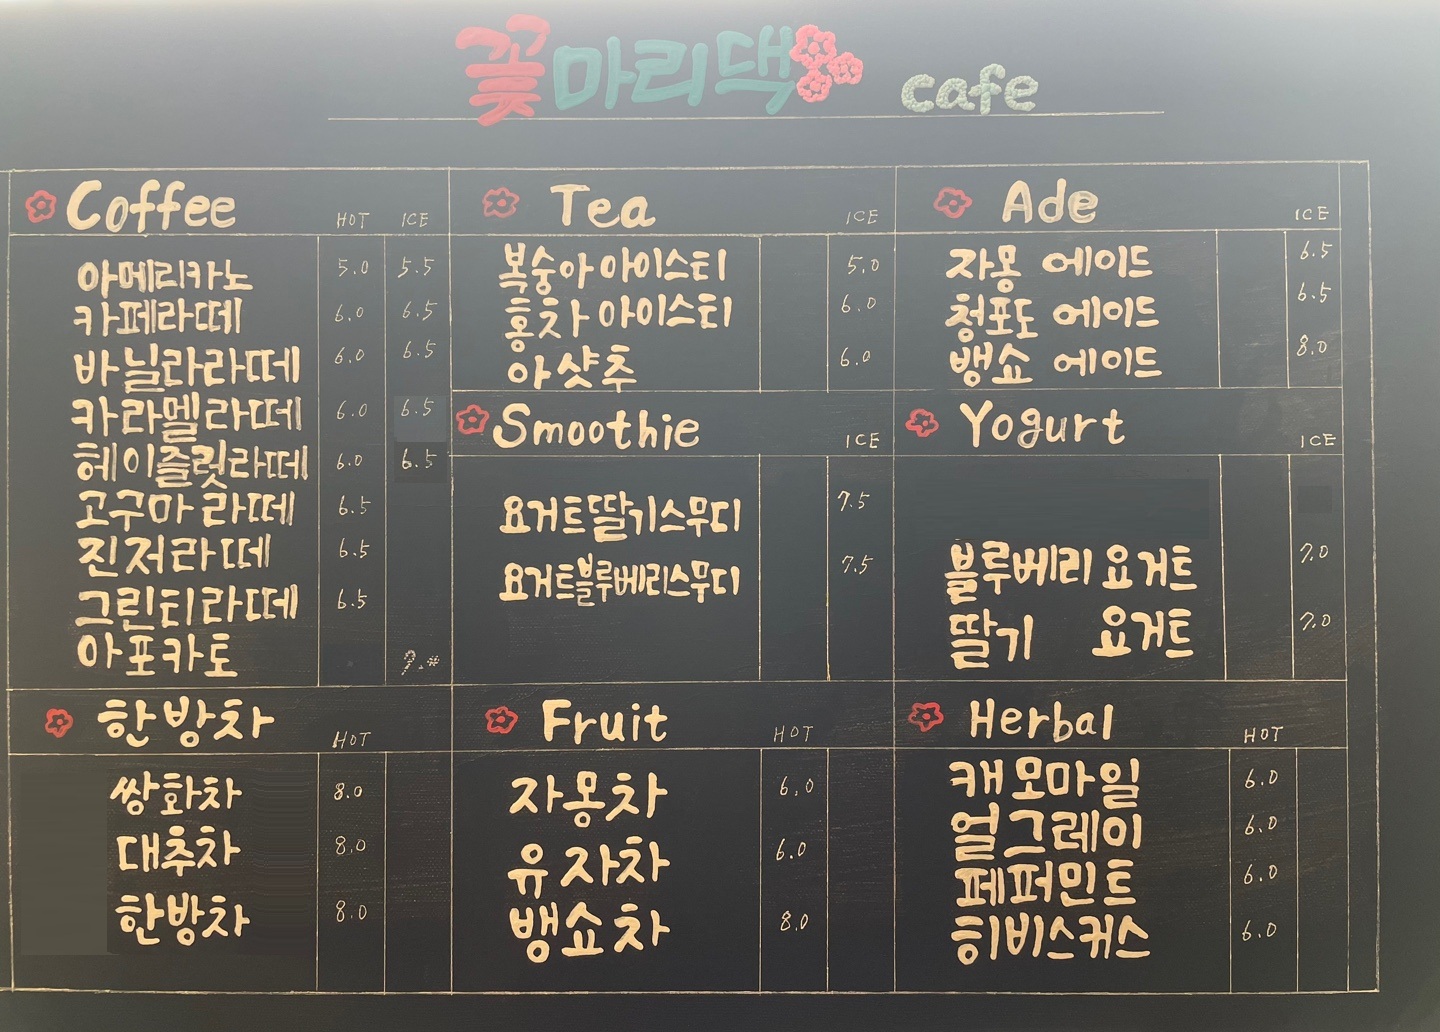 꽃마리댁 cafe
Coffee HOT ICE
아메리카노 5.0 5.5
카페라떼 6.0 6.5
바닐라라떼 6.0 6.5
카라멜라떼 6.0 6.5
헤이즐럿라떼 6.0 6.5
고구마라떼 6.5
진저라떼 6.5
그린티라떼 6.5
아포카토
Tea ICE
복숭아 아이스티 5.0
홍차 아이스티 6.0
아샷추 6.0
Ade ICE
자몽 에이드 6.5
청포도 에이드 6.5
뱅쇼 에이드 8.0
Smoothie ICE
요거트딸기스무디 7.5
요거트블루베리스무디 7.5
Yogurt ICE
블루베리 요거트 7.0
딸기 요거트 7.0
한방차 HOT
쌍화차 8.0
대추차 8.0
한방차 8.0
Fruit HOT
자몽차 6.0
유자차 6.0
뱅쇼차 8.0
Herbal HOT
캐모마일 6.0
얼그레이 6.0
페퍼민트 6.0
히비스커스 6.0